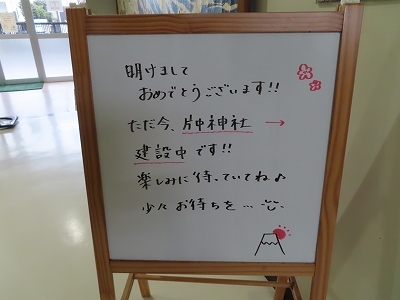 明けまして
おめでとうございます!!
ただ今、片中神社 →
建設中です!!
楽しみに待っていてね♪
少々お待ちを…